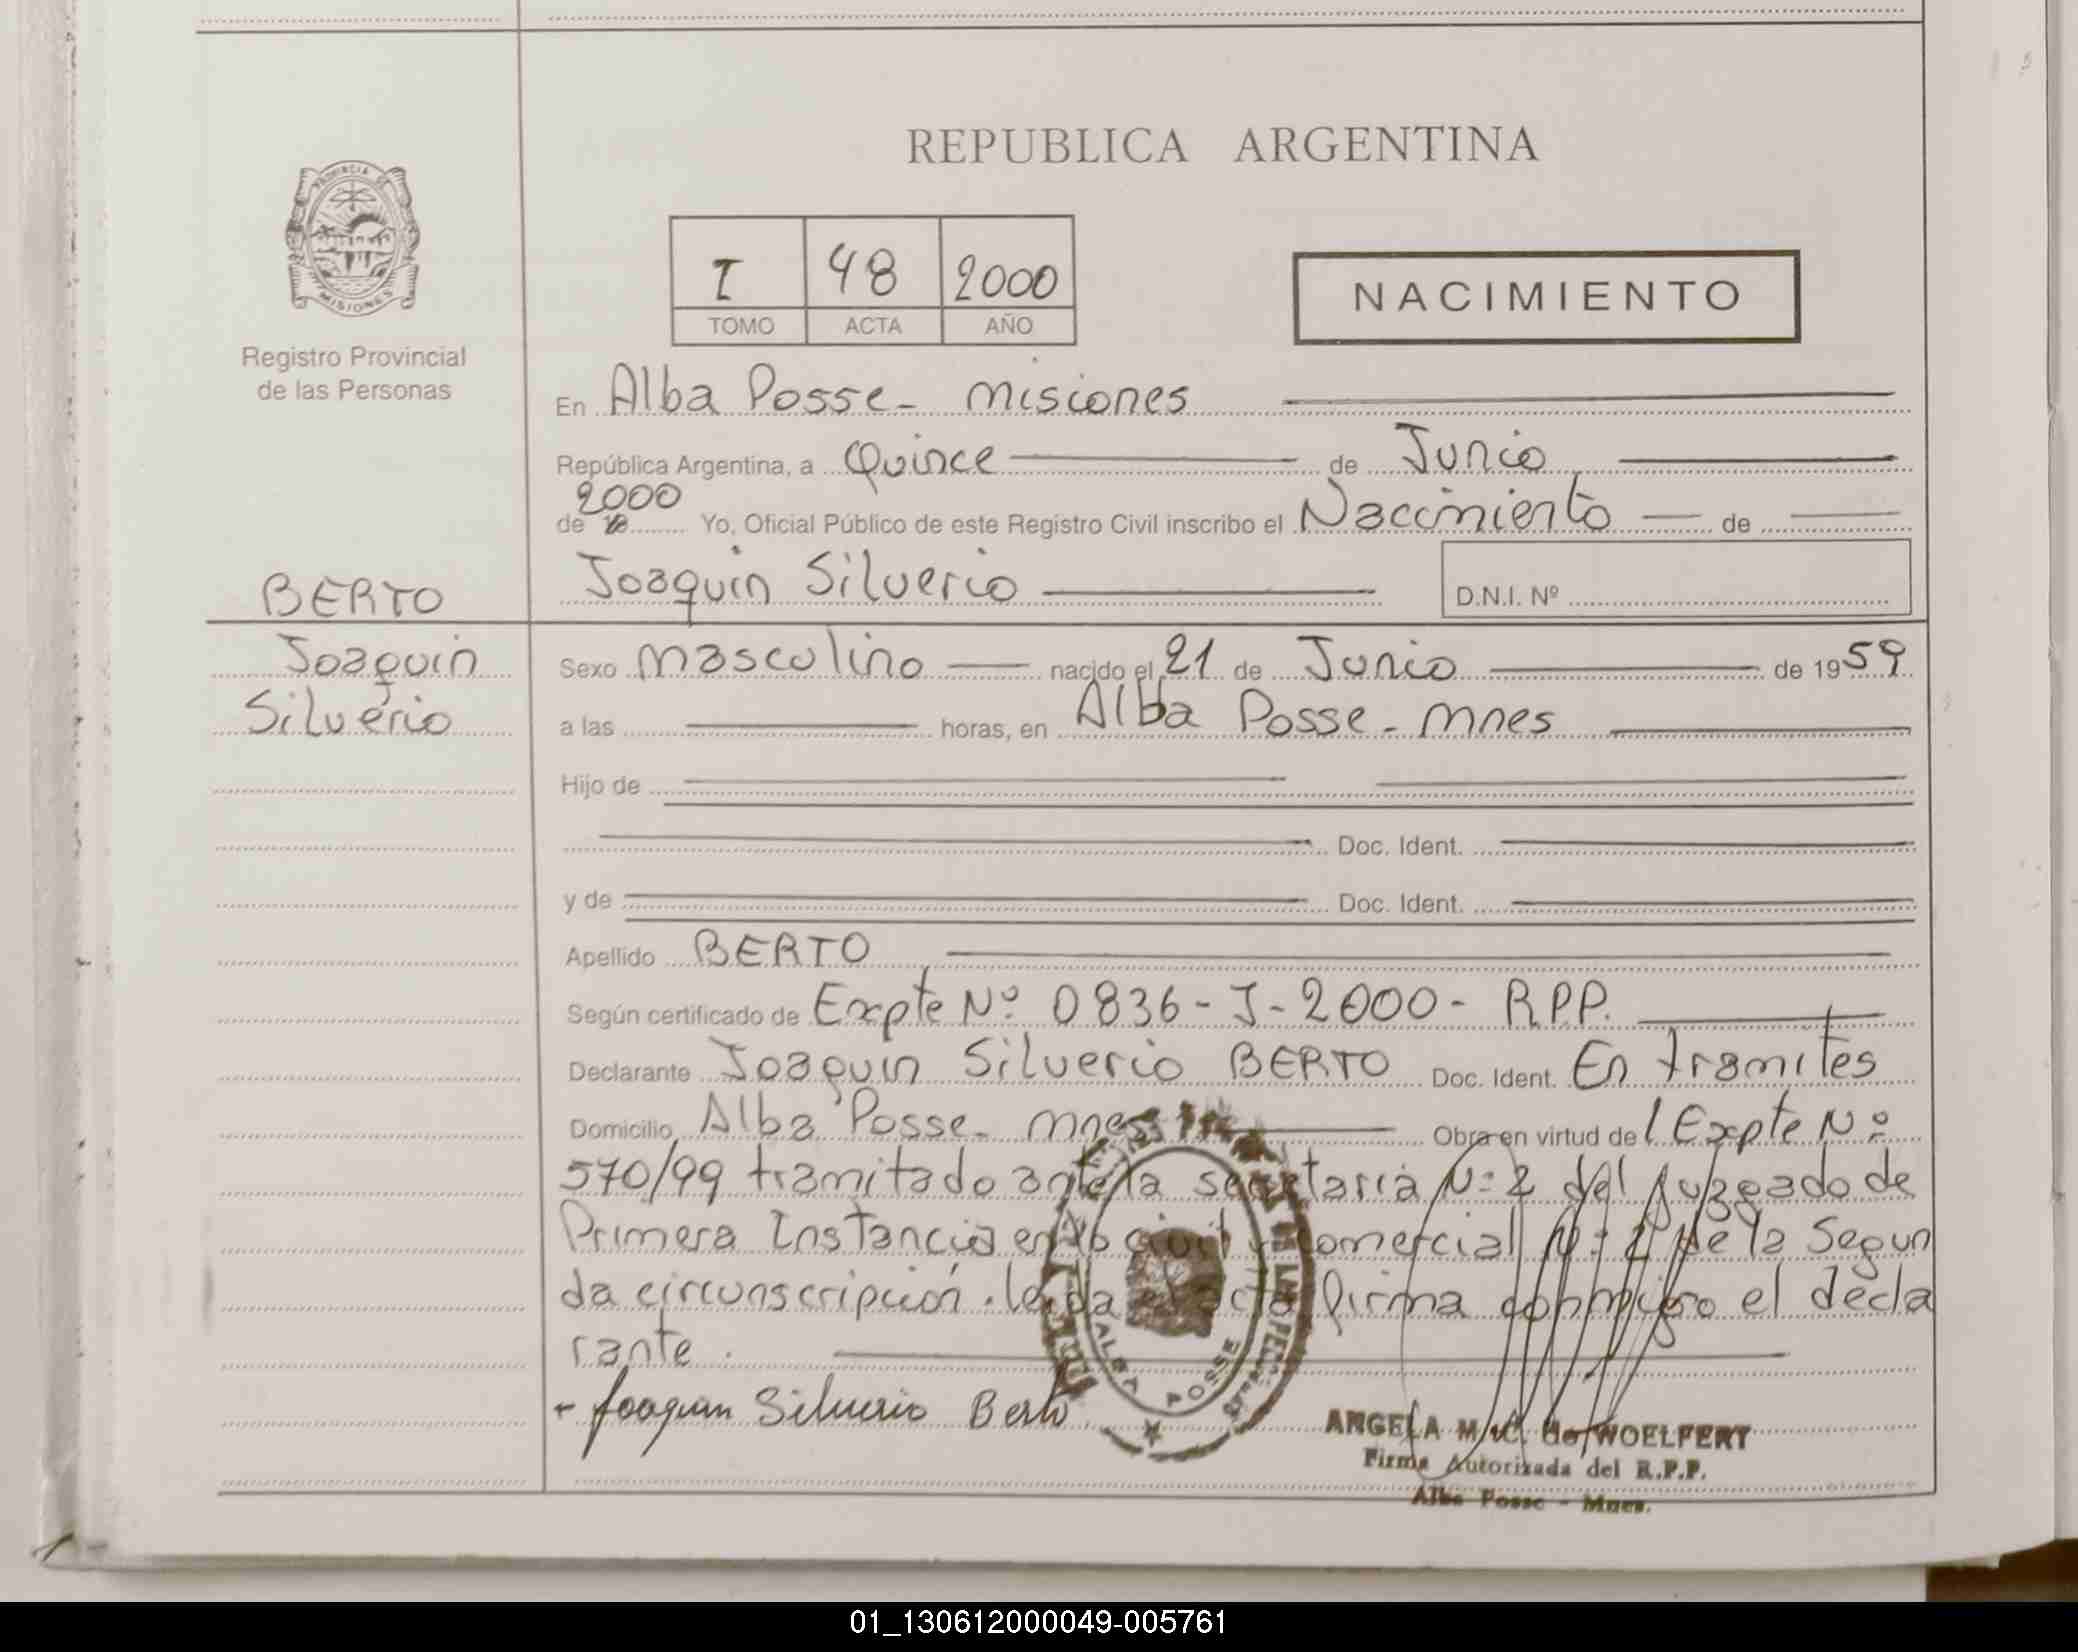 REPUBLICA ARGENTINA
PROVINCIA DE
MISIONES
Registro Provincial
de las Personas
I 48 2000
TOMO ACTA AÑO
NACIMIENTO
En Alba Posse - Misiones
República Argentina, a Quince de Junio
2000
de 19 Yo, Oficial Público de este Registro Civil inscribo el Nacimiento de
BERTO Joaquin Silverio D.N.I. Nº
Joaquin Sexo Masculino nacido el 21 de Junio de 1959
Silverio a las horas, en Alba Posse - Mnes
Hijo de
Doc. Ident.
y de Doc. Ident.
Apellido BERTO
Según certificado de Expte Nº 0836-J-2000- R.P.P.
Declarante Joaquin Silverio BERTO Doc. Ident. En tramites
Domicilio Alba Posse - Mnes Obra en virtud del Expte Nº
570/99 tramitado ante la secretaria Nº 2 del Juzgado de
Primera Instancia en lo civil y comercial Nº 2 de la Segun
da circunscripción. leida el acta firma conmigo el decla
rante.
Joaquin Silverio Berto
ALBA POSSE
ANGELA M. C. de WOELFERT
Firma Autorizada del R.P.P.
Alba Posse - Mnes.
01_130612000049-005761